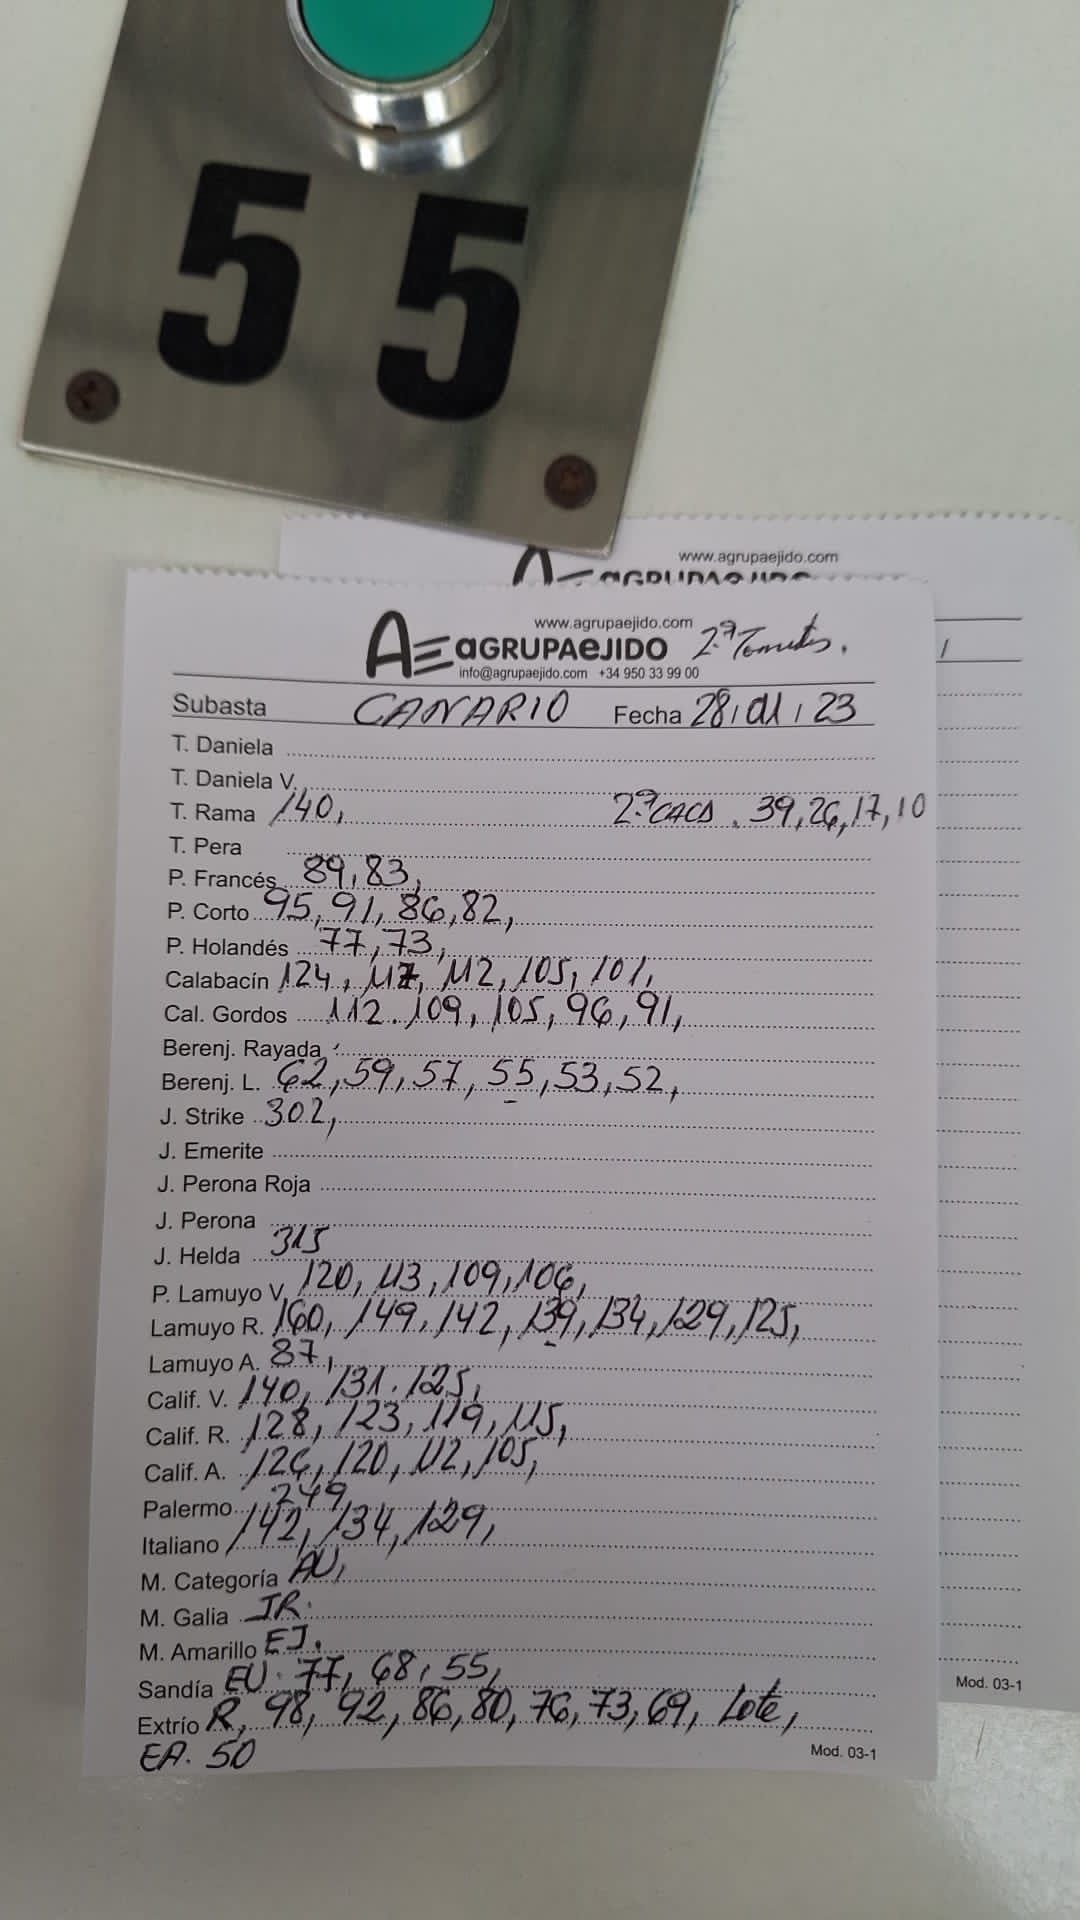 55
www.agrupaejido.com
AGRUPAEJIDO
www.agrupaejido.com
AE AGRUPAEJIDO 2ª Tomates.
info@agrupaejido.com +34 950 33 99 00
Subasta CANARIO Fecha 28/01/23
T. Daniela
T. Daniela V.
T. Rama 140, 2ª CACD. 39,26,17,10
T. Pera
P. Francés 89,83,
P. Corto 95, 91, 86,82,
P. Holandés 77,73,
Calabacín 124, 117, 112, 105, 101,
Cal. Gordos 112. 109, 105, 96, 91,
Berenj. Rayada
Berenj. L. 62,59,57, 55,53,52,
J. Strike 302,
J. Emerite
J. Perona Roja
J. Perona
J. Helda 315
P. Lamuyo V. 120, 113, 109, 106,
Lamuyo R. 160, 149, 142, 139, 134, 129, 125,
Lamuyo A. 87,
Calif. V. 140, 131. 125,
Calif. R. 128, 123, 119, 115,
Calif. A. 126, 120, 112, 105,
Palermo 249
Italiano 142, 134, 129,
M. Categoría AU,
M. Galia JR.
M. Amarillo EJ.
Sandía EU. 77, 68, 55,
Extrío R, 98, 92, 86,80, 76,73,69, Lote,
EA. 50
Mod. 03-1
Mod. 03-1